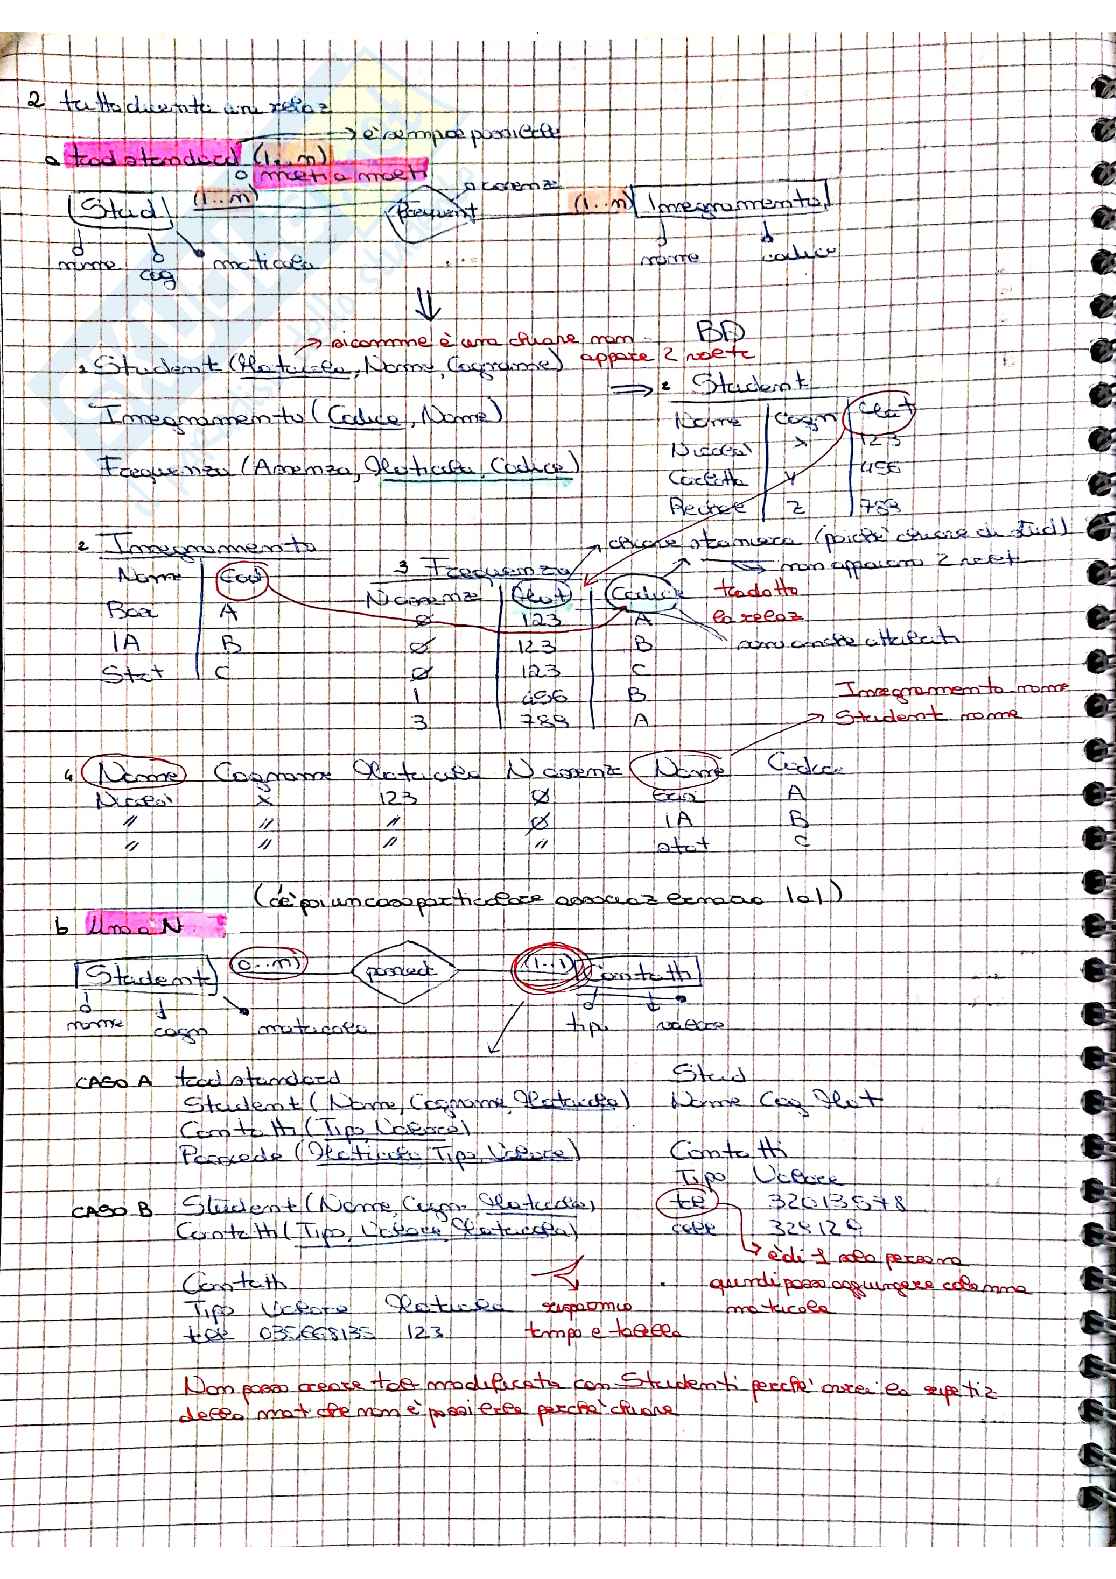 2 traducenta una relaz
→ è sempre possibile
a trad standard (1..n)
o molti a molti
Stud (1..n) frequent o assenze (1..n) Insegnamento
nome cog matricola ... nome codice
⇓
→ siccome è una chiave non appare 2 volte
BD
1 Student (Matricola, Nome, Cognome)
⇒ 2 Student
Insegnamento (Codice, Nome)
Nome Cogn Mat
Nicolai X 123
Frequenza (Assenza, Matricola, Codice)
Carlotta Y 456
Rachele Z 789
→ chiave straniera (poiché chiave di stud)
2 Insegnamento
3 Frequenza
→ non appaiono 2 volte
Nome Cod
N assenze Mat Codice
tradotta la relaz
Bda A
Ø 123 A
→ sono anche attributi
IA B
Ø 123 B
Stat C
Ø 123 C
1 456 B
3 789 A
Insegnamento nome
→ Student nome
4 Nome Cognome Matricola N assenz Nome Codice
Nicolai X 123 Ø A
" " " Ø IA B
" " " " stat C
(c'è poi un caso particolare associaz 1 a 1)
b Uno a N
Student (0..n) possied (1..1) Contatti
nome cogn matricola tipo valore
CASO A trad standard
Student (Nome, Cognome, Matricola)
Contatti (Tipo, Valore)
Possiede (Matricola, Tipo, Valore)
Stud
Nome Cog Mat
Contatti
Tipo Valore
tel 32013578
cell 324124
CASO B Student (Nome, Cogn, Matricola)
Contatti (Tipo, Valore, Matricola)
→ è di 1 sola persona
quindi posso aggiungere colonna
matricola
Contatti
Tipo Valore Matricola
tel 035668135 123
risparmio
tempo e tabella
Non posso creare tab modificata con Studenti perché avrei la ripetiz
della mat che non è possibile perché chiave